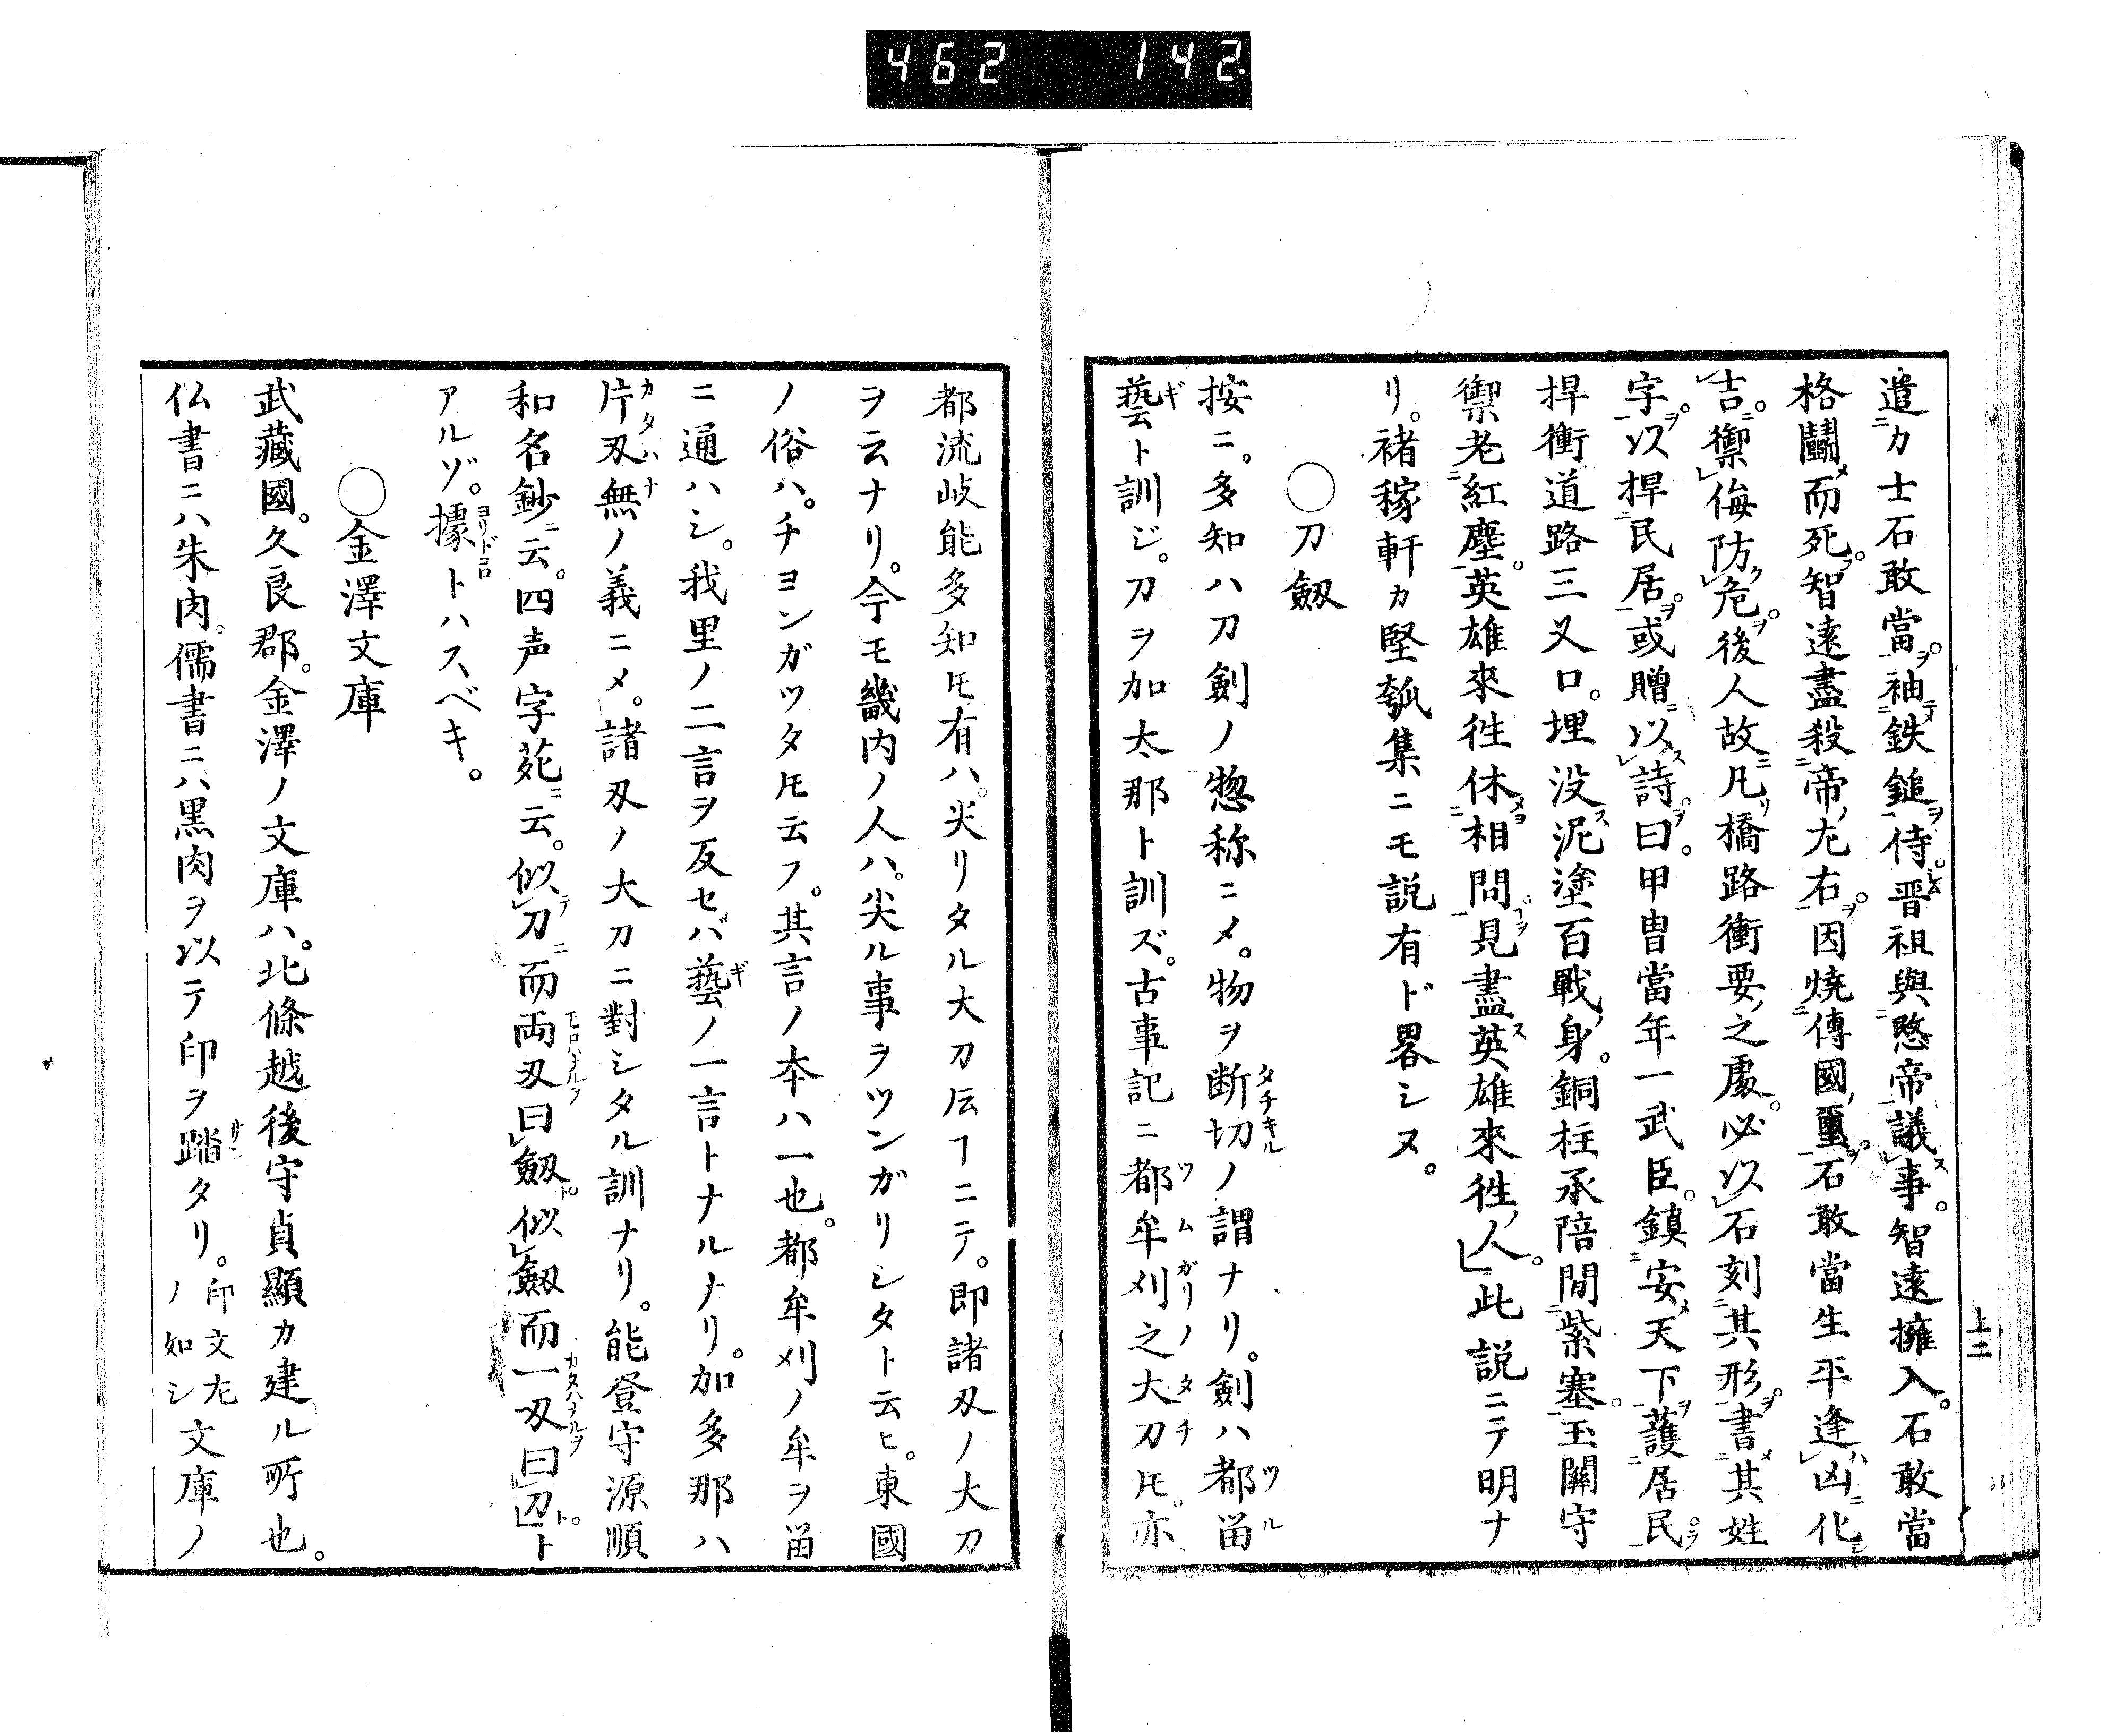 462 142.
遣力士石敢當。袖鉄鎚侍晋祖與愍帝議事。智遠擁入。石敢當
格鬪而死。智遠盡殺帝左右。因燒傳國璽。石敢當生平逢凶化
吉。禦侮防危。後人故凡橋路衝要之處。必以石刻其形。書其姓
字。以捍民居。或贈以詩曰。甲冑當年一武臣。鎮安天下護居民。
捍衝道路三叉口。埋没泥塗百戰身。銅柱承陪間紫塞。玉關守
禦老紅塵。英雄來徃休相問。見盡英雄來徃人。此説ニテ明ナ
リ。禇稼軒カ堅瓠集ニモ説有ド畧シヌ。
○刀劔
按ニ。多知ハ刀劍ノ惣称ニメ。物ヲ断切ノ謂ナリ。劍ハ都留
藝ト訓ジ。刀ヲ加太那ト訓ズ。古事記ニ都牟刈之大刀𪜈。亦
上二
都流岐能多知𪜈有ハ。尖リタル大刀伝ヿニテ。即諸刄ノ大刀
ヲ云ナリ。今モ畿内ノ人ハ。尖ル事ヲツンガリシタト云ヒ。東國
ノ俗ハ。チヨンガツタ𪜈云フ。其言ノ本ハ一也。都牟刈ノ牟ヲ留
ニ通ハシ。我里ノ二言ヲ反セバ藝ノ一言トナルナリ。加多那ハ
片刄無ノ義ニメ。諸刄ノ大刀ニ對シタル訓ナリ。能登守源順
和名鈔ニ云。四声字苑ニ云。似刀而両刄曰劔。似劔而一刄曰刀ト
アルゾ。據トハスベキ。
○金澤文庫
武藏國。久良郡。金澤ノ文庫ハ。北條越後守貞顯カ建ル所也。
仏書ニハ朱肉。儒書ニハ黒肉ヲ以テ印ヲ踏タリ。印文左ノ如シ文庫ノ